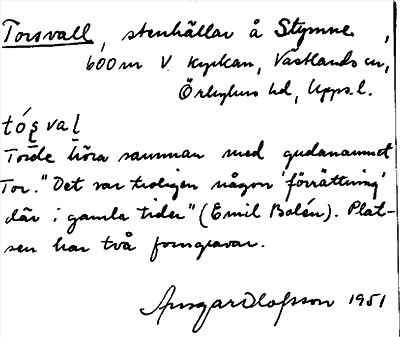 Torsvall, stenhällar å Stymne,
600 m V. kyrkan, Västlands sn,
Örbyhus hd, Upps.l.
tós̨val̨
Torde höra samman med gudanamnet
Tor. "Det var troligen någon 'förrättning'
där i gamla tider" (Emil Bolén). Plat-
sen har två forngravar.
Ansgar Olofsson 1951